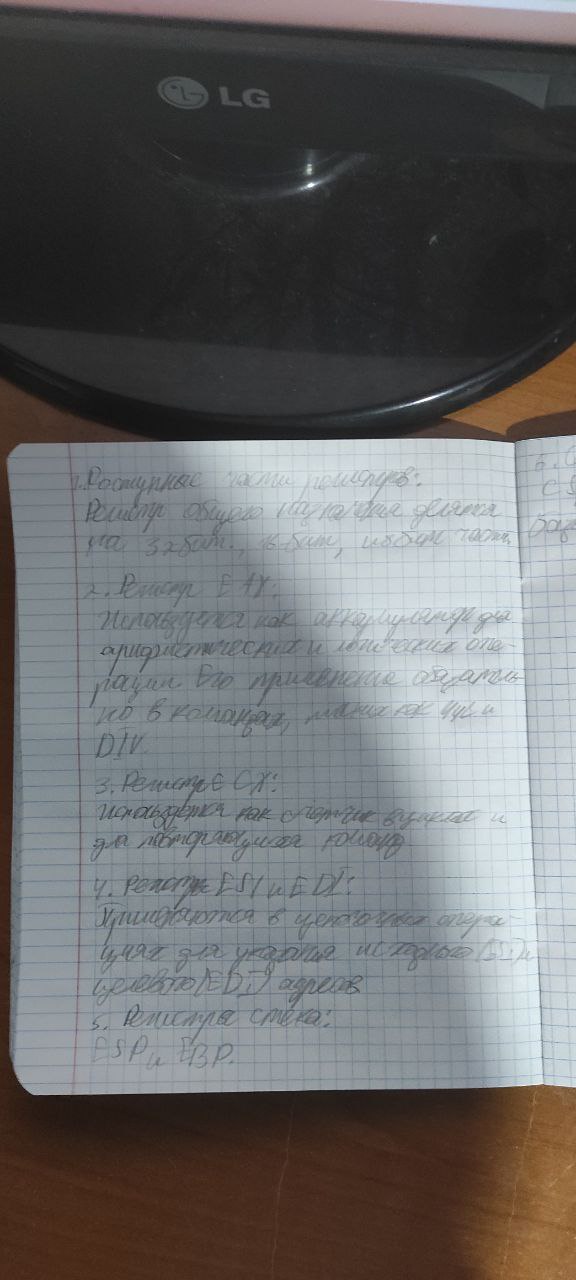 LG
1. Доступные части регистров:
Регистр общего назначения делятся
на 32бит., 16 бит, и 8бит части.
2. Регистр EAX:
Используется как аккумулятор для
арифметических и логических опе-
рации Его применение обязатель-
но в командах, таких как MUL и
DIV.
3. Регистр ECX:
Используется как счетчик в циклах и
для повторяющихся команд
4. Регистры ESI и EDI:
Применяются в цепочечных опера-
циях для указания исходного (ESI) и
целевого (EDI) адресов
5. Регистры стека:
ESP и EBP.
6.
CS